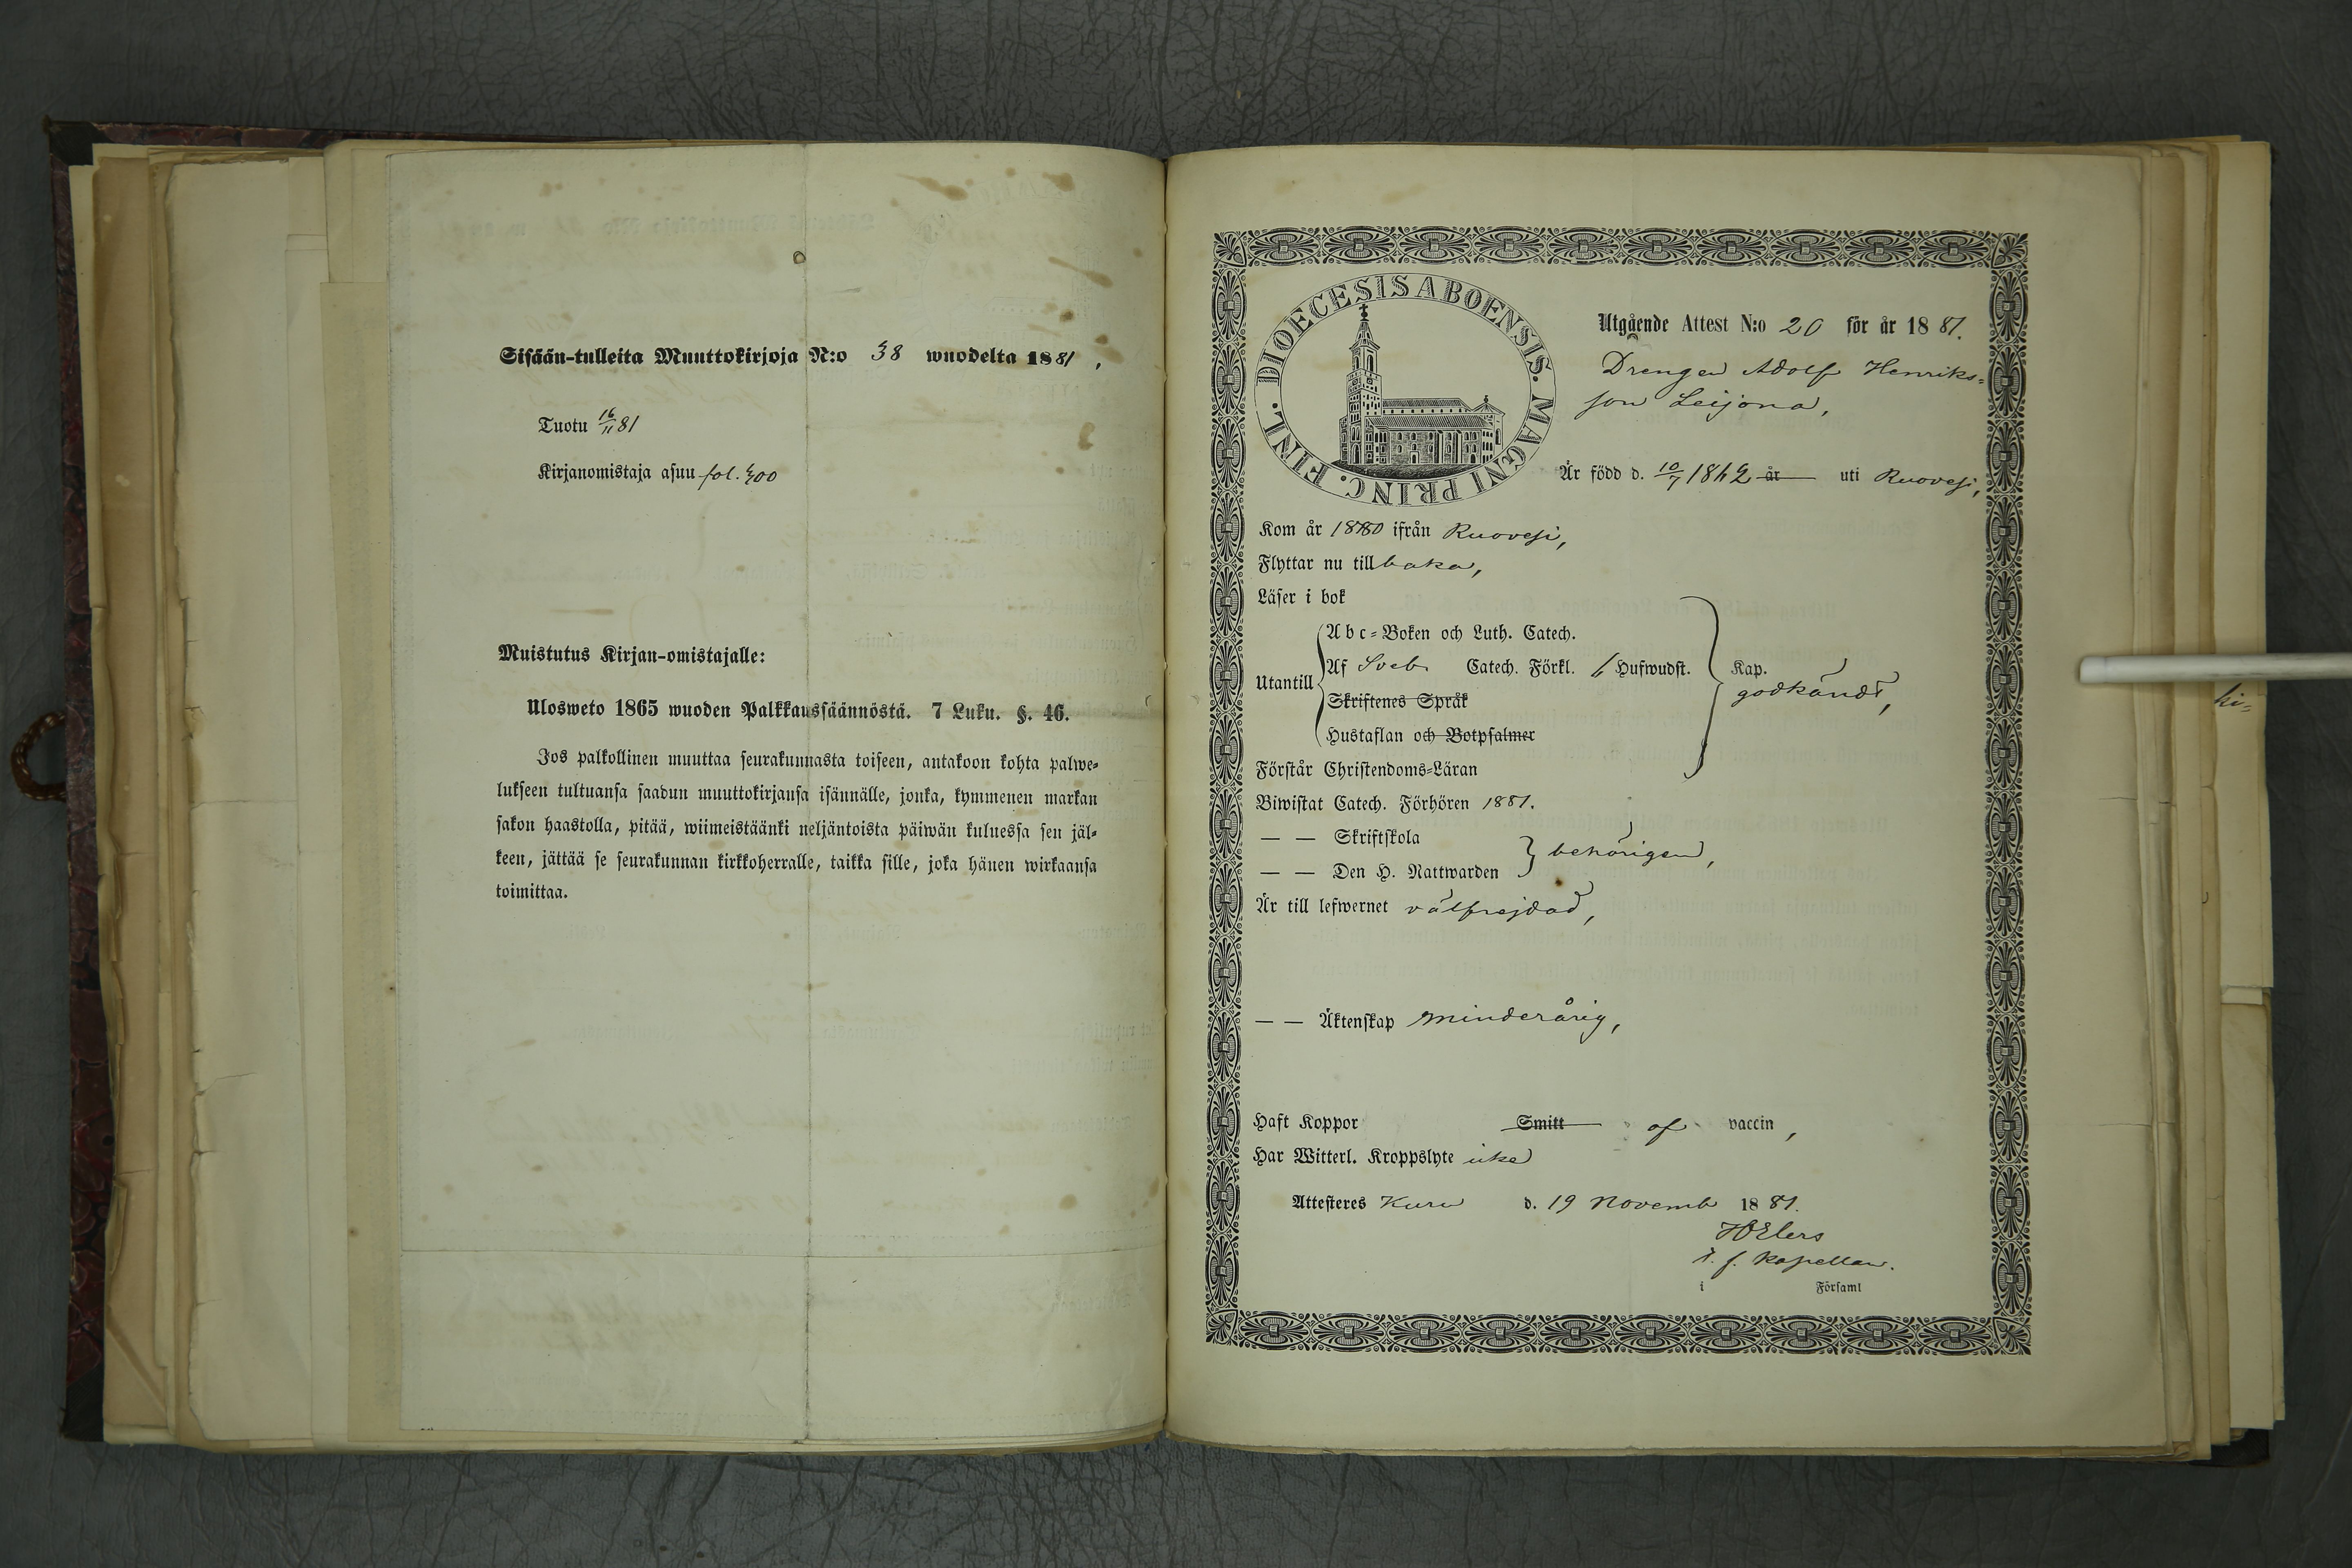 Sisään-tulleita Muuttokirjoja N:o 38 wuodelta 1881,
Tuotu 16/11 81
Kirjanomistaja asuu fol. 400
Muistutus Kirjan-omistajalle:
Ulosweto 1865 wuoden Palkkaussäännöstä. 7 Luku. §. 46.
Jos palkollinen muuttaa seurakunnasta toiseen, antakoon kohta palwe-
lukseen tultuansa saadun muuttokirjansa isännälle, jonka, kymmenen markan
sakon haastolla, pitää, wiimeistäänki neljäntoista päiwän kuluessa sen jäl-
keen, jättää se seurakunnan kirkkoherralle, taikka sille, joka hänen wirkaansa
toimittaa.
DIOECESIS ABOENSIS. MAGNI PRINC. FINL.
Utgående Attest N:o 20 för år 1881.
Drengen Adolf Henriks-
son Leijona,
Är född d. 10/7 1862 år uti Ruovesi,
Kom år 1880 ifrån Ruovesi,
Flyttar nu tillbaka,
Läser i bok
Utantill
Abc-Boken och Luth. Catech.
Af Sveb. Catech. Förkl. 6 Hufwudst.
Skriftenes Språk
Hustaflan och Botpsalmer
Kap.
godkändt,
Förstår Christendoms-Läran
Biwistat Catech. Förhören 1881.
— — Skriftskola
— — Den H. Nattwarden
behörigen,
Är till lefwernet välfrejdad,
— — Äktenskap minderårig,
Haft Koppor Smitt af vaccin,
Har Witterl. Kroppslyte icke
Attesteres Kuru d. 19 Novemb 1881.
HElers
v. f. Kapellan.
i Församl
ki-